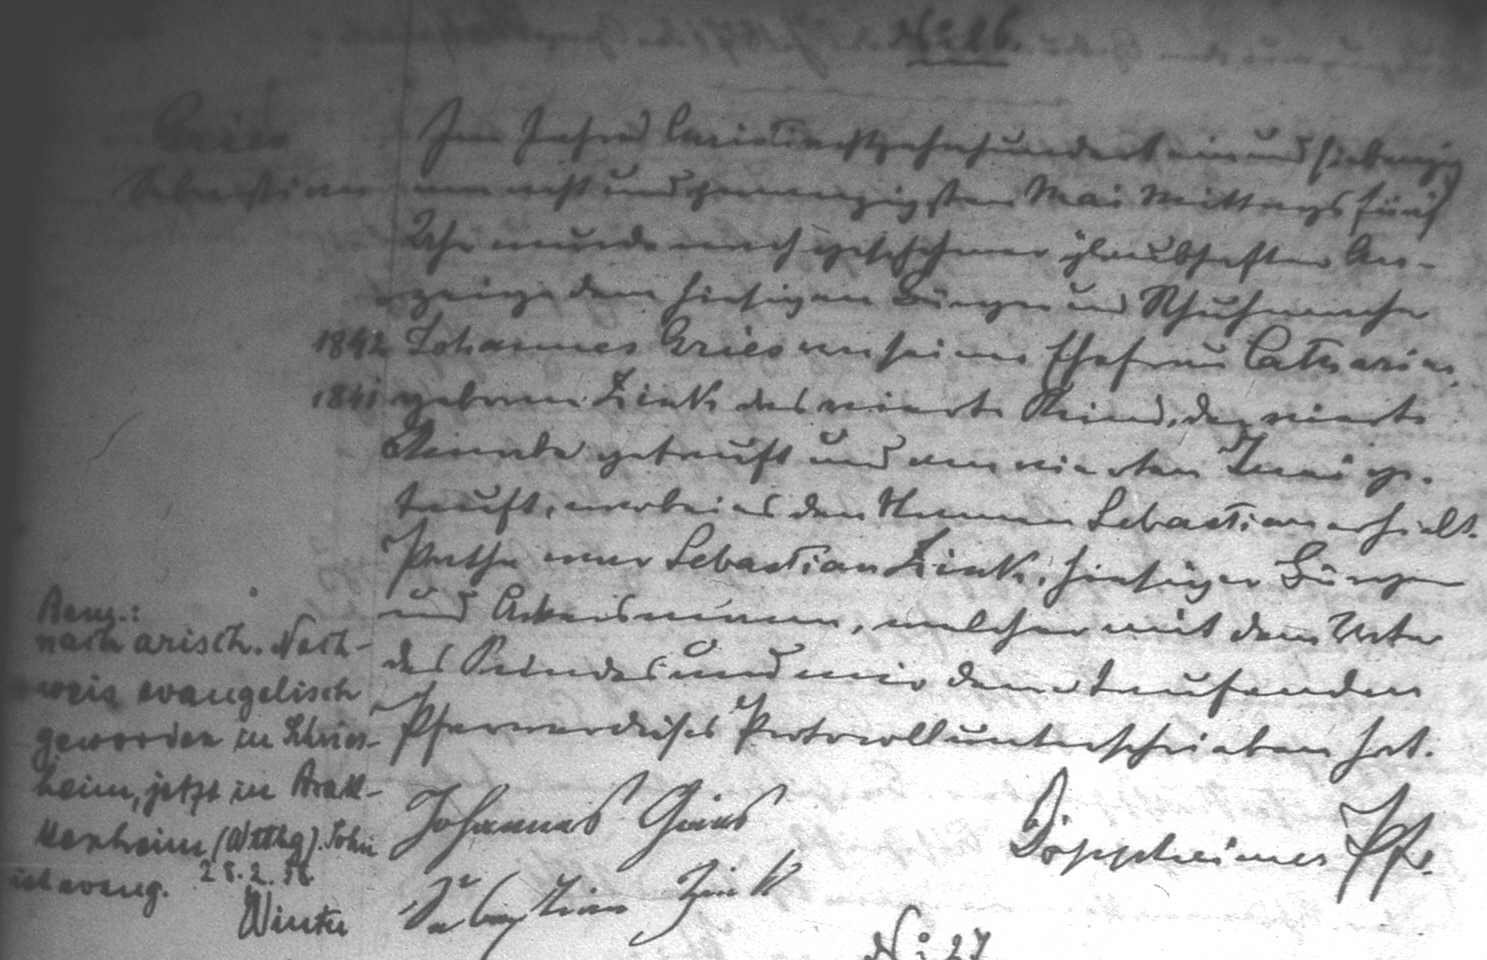 No 26.
Gries
Sebastian
Im Jahre Christi achtzehnhundert ein und siebenzig
am acht und zwanzigsten Mai Mittags fünf
Uhr wurde nach geschehener glaubhafter An-
zeige dem hiesigen Bürger und Schuhmacher
1842 Johannes Gries von seiner Ehefrau Catharina,
1841 geborne Zink das vierte Kind, der vierte
Knabe getauft und am vierten Juni ge-
tauft, wobei es den Namen Sebastian erhielt.
Pathe war Sebastian Zink, hiesiger Bürger
und Ackersmann, welcher mit dem Vater
des Kindes und mir dem taufenden
Pfarrer dieses Protocoll unterschrieben hat.
Johannes Gries
Sebastian Zink
Döppheimer Pfr.
Bem.:
nach arisch. Nach-
weis evangelisch
geworden in Kries-
heim, jetzt in
(Wttbg). Sohn
ist evang. 28.2.38
Winter
No 27